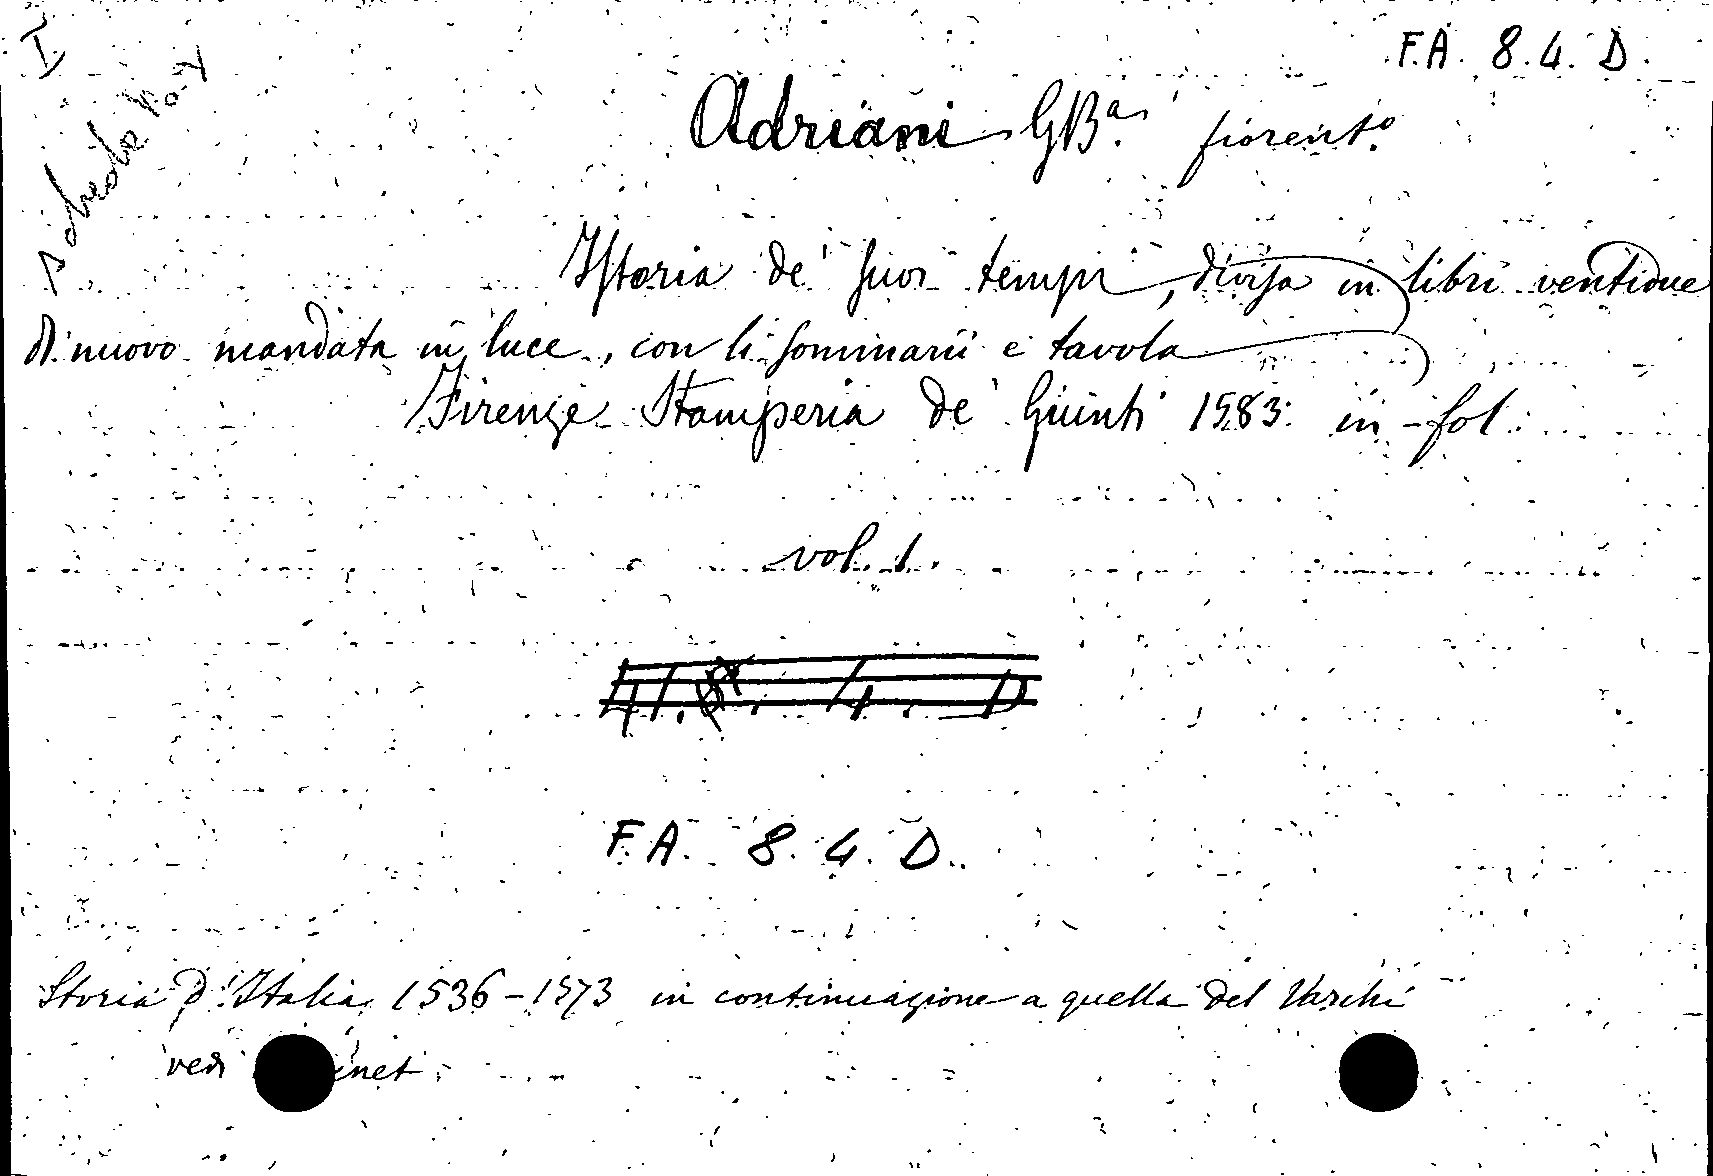 F.A. 8.4. D.
I
Adriani GBa. fiorento.
Istoria de' suoi tempi, divisa in libri ventidue
di nuovo mandata in luce, con li sommarii e tavola
Firenze Stamperia de' Giunti 1583. in-fol.
vol. 1.
F.A. 8. 4. D.
Storia d'Italia 1536-1573 in continuazione a quella del Varchi
vedi inet.